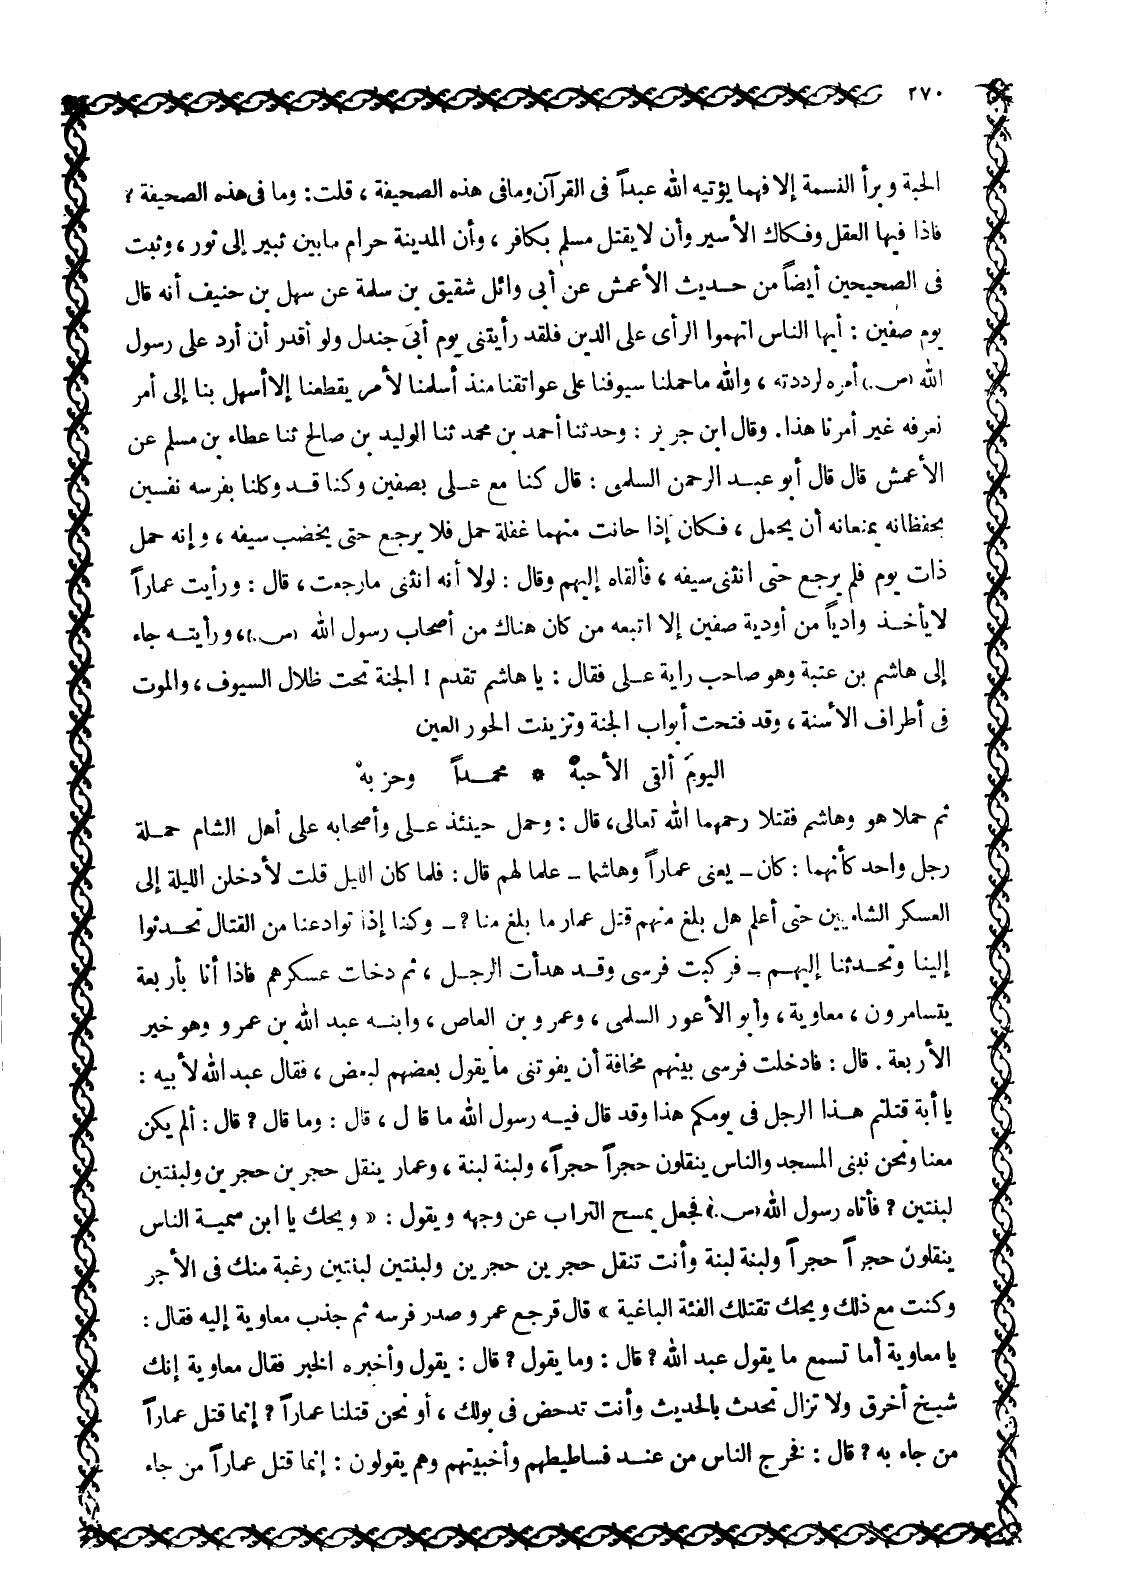 ٢٧٠
الحبة وبرأ النسمة إلا فهما يؤتيه الله عبداً فى القرآن ومافى هذه الصحيفة ، قلت: وما فى هذه الصحيفة ?
فاذا فيها العقل وفكاك الأسير وأن لا يقتل مسلم بكافر ، وأن المدينة حرام مابين ثبير إلى ثور ، وثبت
فى الصحيحين أيضاً من حديث الأعمش عن أبى وائل شقيق بن سلمة عن سهل بن حنيف أنه قال
يوم صفين : أيها الناس اتهموا الرأى على الدين فلقد رأيتنى يوم أبى جندل ولو أقدر أن أرد على رسول
الله (ص.) أمره لرددته ، والله ماحملنا سيوفنا على عواتقنا منذ أسلمنا لأمر يقطعنا إلا أسهل بنا إلى أمر
نعرفه غير أمرنا هذا. وقال ابن جرير : وحدثنا أحمد بن محمد ثنا الوليد بن صالح ثنا عطاء بن مسلم عن
الأعمش قال قال أبو عبد الرحمن السلمى : قال كنا مع على بصفين وكنا قد وكلنا بفرسه نفسين
يحفظانه يمنعانه أن يحمل ، فكان إذا حانت منهما غفلة حمل فلا يرجع حتى يخضب سيفه ، وإنه حمل
ذات يوم فلم يرجع حتى انثنى سيفه ، فألقاه إليهم وقال : لولا أنه انثنى مارجعت ، قال : ورأيت عماراً
لا يأخذ وادياً من أودية صفين إلا اتبعه من كان هناك من أصحاب رسول الله (ص.)، ورأيته جاء
إلى هاشم بن عتبة وهو صاحب راية على فقال : يا هاشم تقدم ! الجنة تحت ظلال السيوف ، والموت
فى أطراف الأسنة ، وقد فتحت أبواب الجنة وتزينت الحور العين
اليومَ ألقى الأحبهْ * محمداً وحزبهْ
ثم حملا هو وهاشم فقتلا رحمهما الله تعالى، قال : وحمل حينئذ على وأصحابه على أهل الشام حملة
رجل واحد كأنهما : كان ـ يعنى عماراً وهاشما ـ علما لهم قال : فلما كان الليل قلت لأدخلن الليلة إلى
العسكر الشاميين حتى أعلم هل بلغ منهم قتل عمار ما بلغ منا ? ـ وكنا إذا توادعنا من القتال تحدثوا
إلينا وتحدثنا إليهم ـ فركبت فرسى وقد هدأت الرجل ، ثم دخلت عسكرهم فاذا أنا بأربعة
يتسامرون ، معاوية ، وأبو الأعور السلمى ، وعمرو بن العاص ، وابنه عبد الله بن عمرو وهو خير
الأربعة . قال : فادخلت فرسى بينهم مخافة أن يفوتنى ما يقول بعضهم لبعض ، فقال عبد الله لأبيه :
يا أبة قتلتم هذا الرجل فى يومكم هذا وقد قال فيه رسول الله ما قال ، قال : وما قال ? قال : ألم يكن
معنا ونحن نبنى المسجد والناس ينقلون حجراً حجراً ، ولبنة لبنة ، وعمار ينقل حجرين حجرين ولبنتين
لبنتين ? فأتاه رسول الله (ص.) فجعل يمسح التراب عن وجهه ويقول : « ويحك يا ابن سمية الناس
ينقلون حجراً حجراً ولبنة لبنة وأنت تنقل حجرين حجرين ولبنتين لبنتين رغبة منك فى الأجر
وكنت مع ذلك ويحك تقتلك الفئة الباغية » قال فرجع عمرو صدر فرسه ثم جذب معاوية إليه فقال :
يا معاوية أما تسمع ما يقول عبد الله ? قال : وما يقول ? قال : يقول وأخبره الخبر فقال معاوية إنك
شيخ أخرق ولا تزال تحدث بالحديث وأنت تدحض فى بولك ، أو نحن قتلنا عماراً ? إنما قتل عماراً
من جاء به ? قال : فخرج الناس من عند فساطيطهم وأخبيتهم وهم يقولون : إنما قتل عماراً من جاء